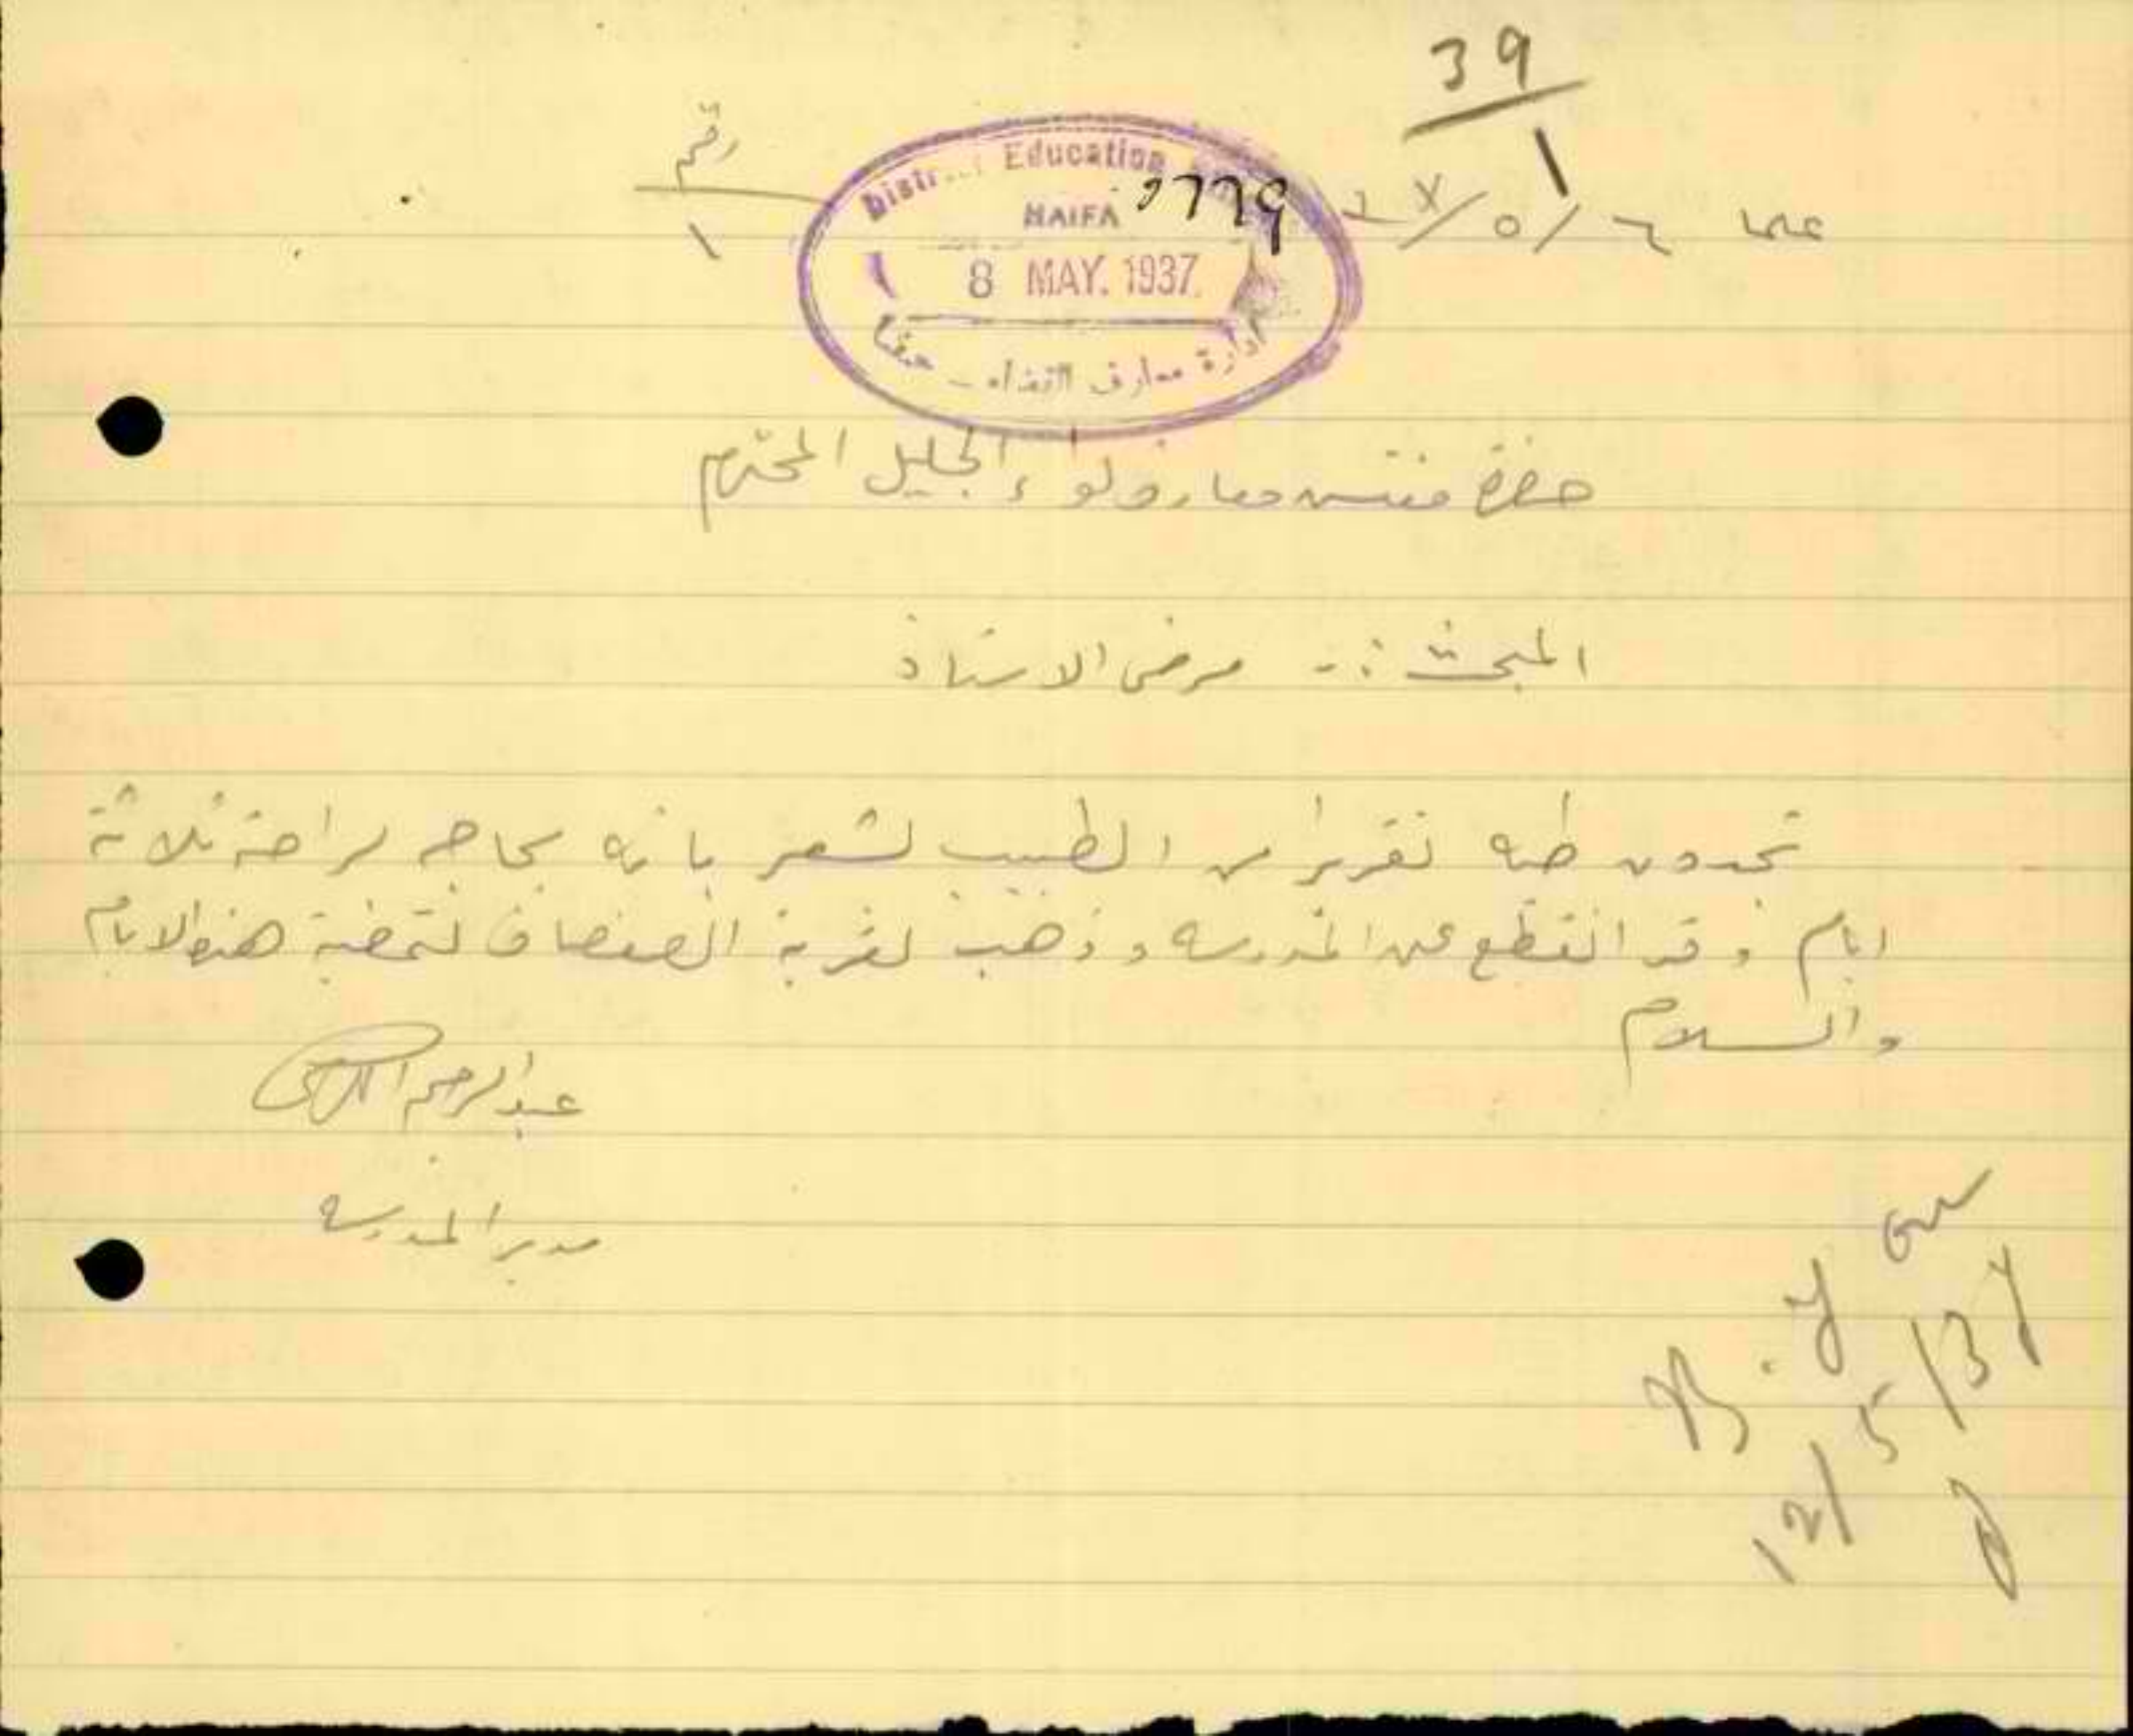 39
1
رقم
١
District Education
HAIFA
8 MAY. 1937
ادارة معارف القضاء - حيفا
٦/٥/٣٧
حضرة مفتش معارف لواء الجليل المحترم
المبحث :- مرض الاستاذ
تجدون طيه تقريرا من الطبيب لشعر بانه بحاجه لراحة ثلاثة
ايام وقد انقطع عن المدرسه وذهب لقرية الصفصاف لتمضية هذه الايام
والسلام
عبد الرحيم
مدير المدرسه
B.y
12/5/37